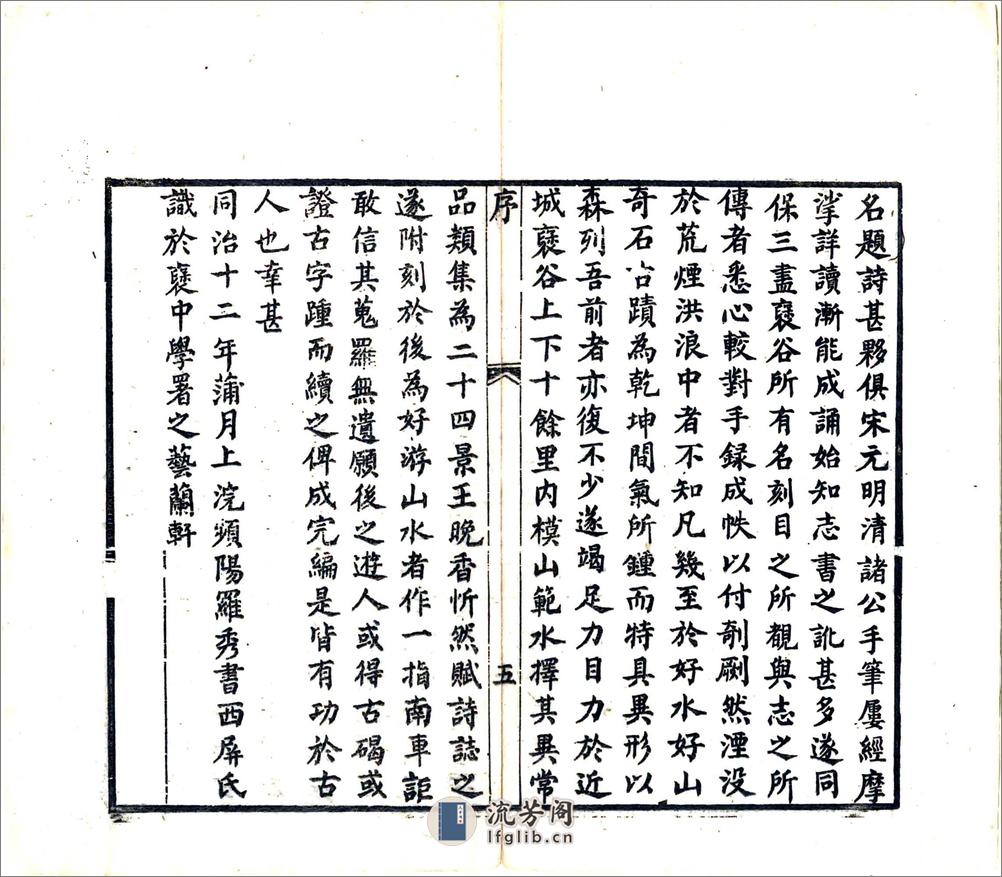 名題詩甚夥俱宋元明清諸公手筆屢經摩
挲詳讀漸能成誦始知志書之訛甚多遂同
保三盡襃谷所有名刻目之所覩與志之所
傳者悉心較對手録成帙以付剞劂然湮没
於荒煙洪浪中者不知凡幾至於好水好山
奇石古蹟為乾坤間氣所鍾而特具異形以
森列吾前者亦復不少遂竭足力目力於近
城襃谷上下十餘里内模山範水擇其異常
序
五
品類集為二十四景王晚香忻然賦詩誌之
遂附刻於後為好游山水者作一指南車詎
敢信其蒐羅無遺願後之遊人或得古碣或
證古字踵而續之俾成完編是皆有功於古
人也幸甚
同治十二年蒲月上浣頻陽羅秀書西屏氏
識於襃中學署之藝蘭軒
流芳阁
lfglib.cn